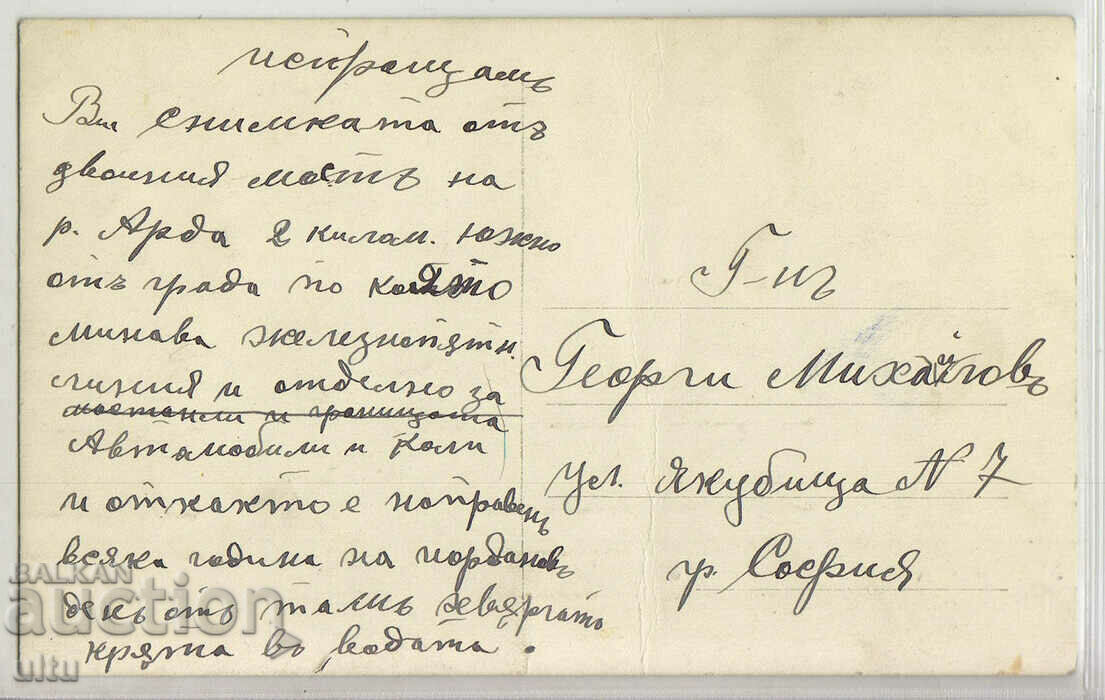 испращамъ
Ви снимката отъ
двойния мостъ на
р. Арда 2 килом. южно
отъ града по който
минава железнопътн.
линия и отделно за
Автомобили и коли
и откакто е направенъ
всяка година на иордановъ
денъ отъ тамъ хвърлятъ
кръста въ водата.
Г-нъ
Георги Михайловъ
ул. Якубица N 7
гр. София
BALKAN
auction
ultu